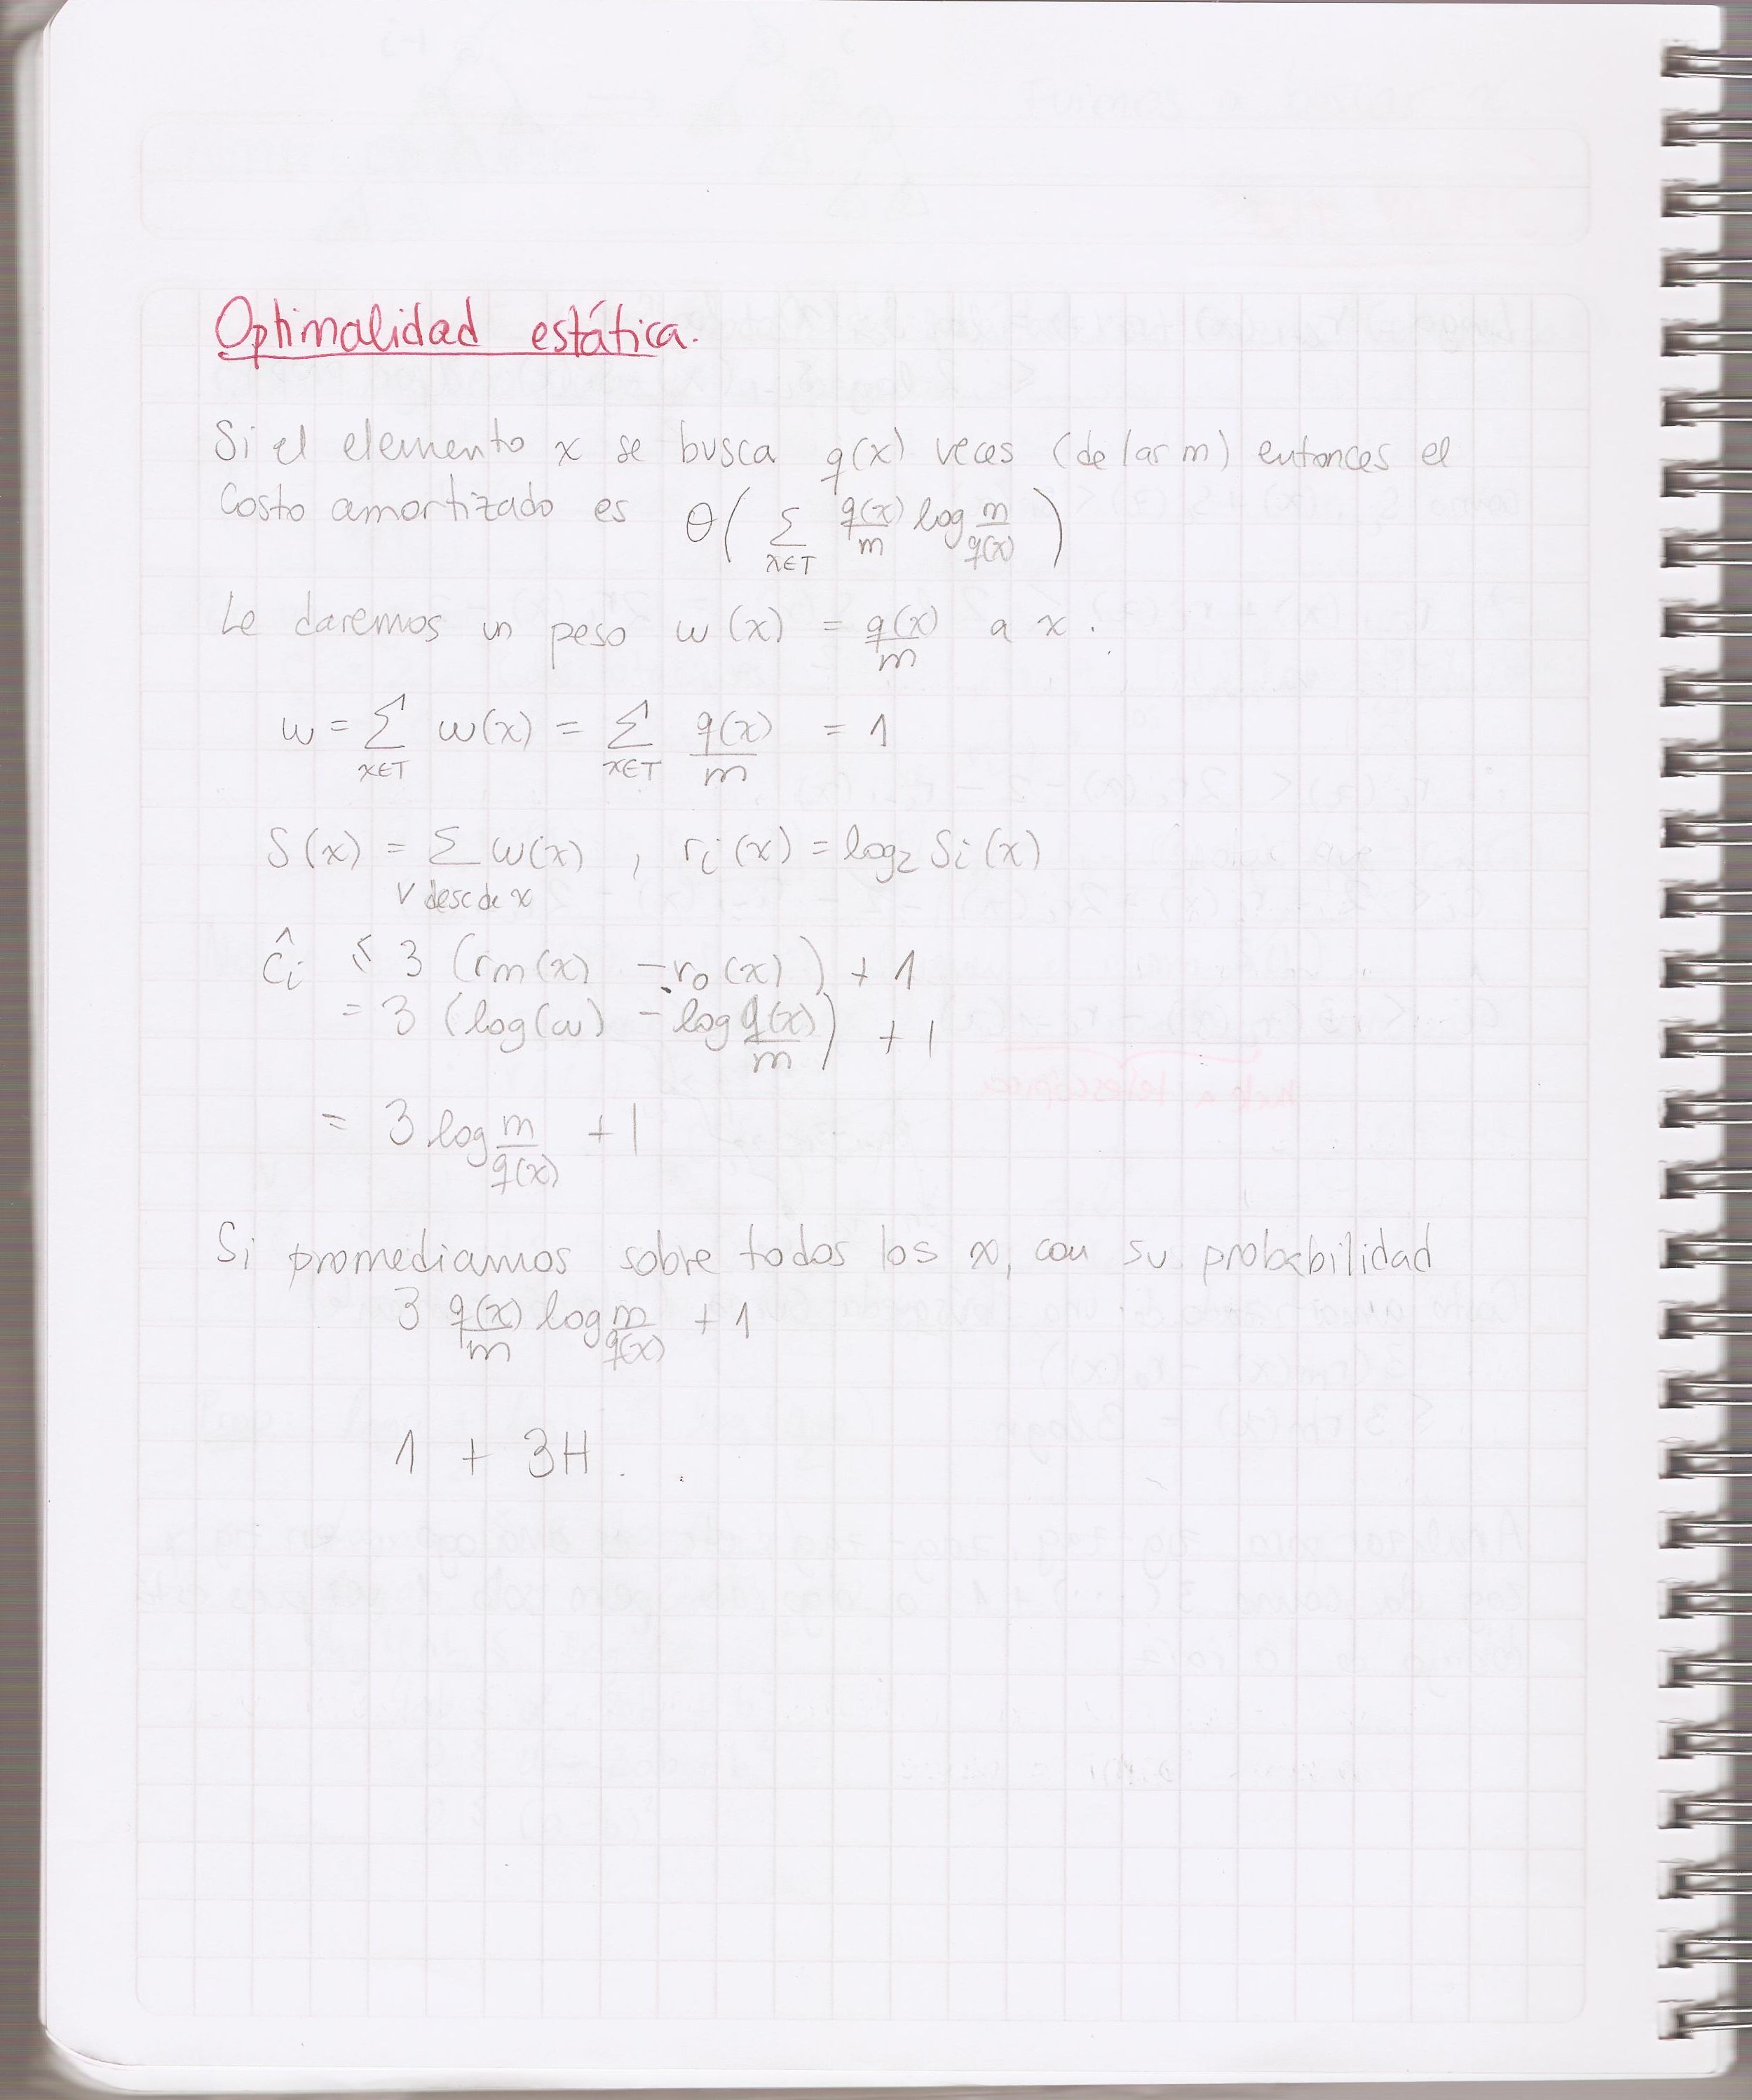 Optimalidad estática.
Si el elemento x se busca q(x) veces (de las m) entonces el
costo amortizado es Θ( Σ_{x∈T} q(x)/m log m/q(x) )
Le daremos un peso w(x) = q(x)/m a x.
w = Σ_{x∈T} w(x) = Σ_{x∈T} q(x)/m = 1
S(x) = Σ_{v desc de x} w(x) , r_i(x) = log₂ S_i(x)
ĉ_i ≤ 3 (r_m(x) - r_0(x)) + 1
= 3 (log(w) - log q(x)/m) + 1
= 3 log m/q(x) + 1
Si promediamos sobre todos los x, con su probabilidad
3 q(x)/m log m/q(x) + 1
1 + 3H.